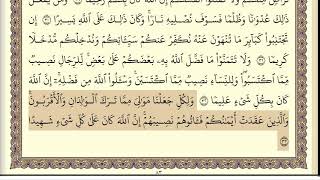 ذَٰلِكَ عُدْوَٰنًا وَظُلْمًا فَسَوْفَ نُصْلِيهِ نَارًا وَكَانَ ذَٰلِكَ عَلَى ٱللَّهِ يَسِيرًا ٣٠ إِن
تَجْتَنِبُوا۟ كَبَآئِرَ مَا تُنْهَوْنَ عَنْهُ نُكَفِّرْ عَنكُمْ سَيِّـَٔاتِكُمْ وَنُدْخِلْكُم مُّدْخَلًا
كَرِيمًا ٣١ وَلَا تَتَمَنَّوْا۟ مَا فَضَّلَ ٱللَّهُ بِهِۦ بَعْضَكُمْ عَلَىٰ بَعْضٍ لِّلرِّجَالِ نَصِيبٌ
مِّمَّا ٱكْتَسَبُوا۟ وَلِلنِّسَآءِ نَصِيبٌ مِّمَّا ٱكْتَسَبْنَ وَسْـَٔلُوا۟ ٱللَّهَ مِن فَضْلِهِۦٓ إِنَّ ٱللَّهَ
كَانَ بِكُلِّ شَىْءٍ عَلِيمًا ٣٢ وَلِكُلٍّ جَعَلْنَا مَوَٰلِىَ مِمَّا تَرَكَ ٱلْوَٰلِدَانِ وَٱلْأَقْرَبُونَ
وَٱلَّذِينَ عَقَدَتْ أَيْمَٰنُكُمْ فَـَٔاتُوهُمْ نَصِيبَهُمْ إِنَّ ٱللَّهَ كَانَ عَلَىٰ كُلِّ شَىْءٍ شَهِيدًا ٣٣
٨٣